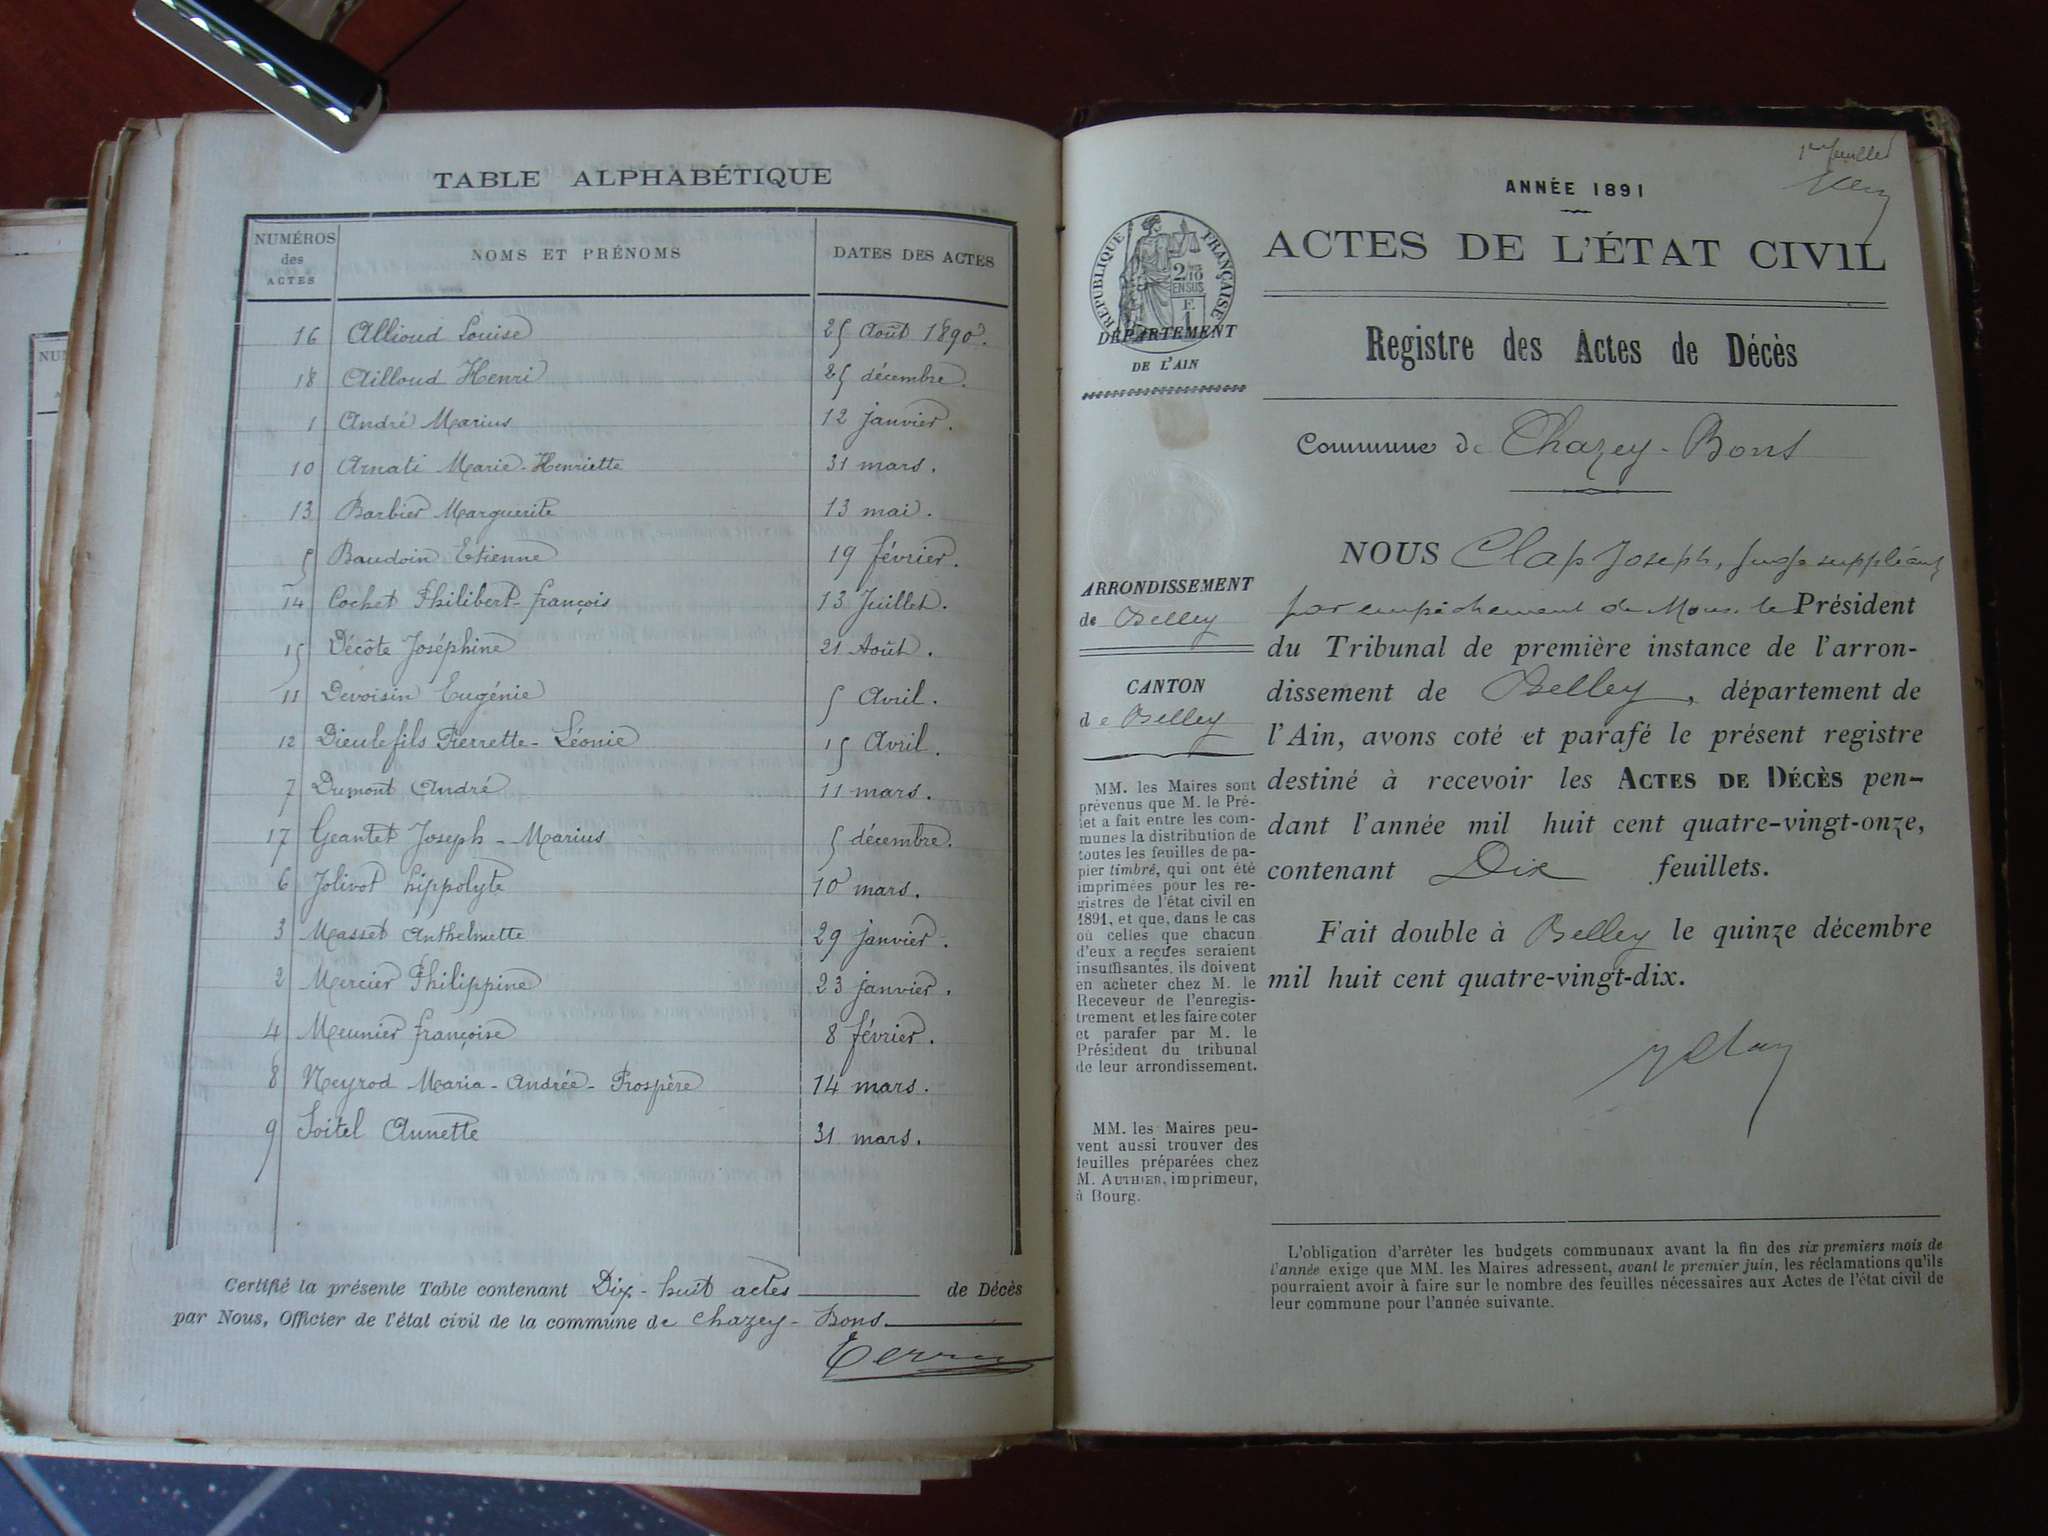 TABLE ALPHABÉTIQUE
NUMÉROS des ACTES NOMS ET PRÉNOMS DATES DES ACTES
16 Allioud Louise 25 Août 1890.
18 Ailloud Henri 25 décembre.
1 André Marius 12 janvier.
10 Arnati Marie-Henriette 31 mars.
13 Barbier Marguerite 13 mai.
5 Baudoin Etienne 19 février.
14 Cochet Philibert-françois 13 Juillet.
15 Décôte Joséphine 21 Août.
11 Devoisin Eugénie 5 Avril.
12 Dieulefils Pierrette-Léonie 15 Avril.
7 Dumont André 11 mars.
17 Geantet Joseph-Marius 5 décembre.
6 Jolivot hippolyte 10 mars.
3 Masset Anthelmette 29 janvier.
2 Mercier Philippine 23 janvier.
4 Meunier françoise 8 février.
8 Neyrod Maria-Andrée-Prospère 14 mars.
9 Soitel Annette 31 mars.
Certifié la présente Table contenant Dix-huit actes de Décès
par Nous, Officier de l'état civil de la commune de Chazey-Bons
1er feuillet
ANNÉE 1891
ACTES DE L'ÉTAT CIVIL
RÉPUBLIQUE FRANÇAISE
DÉPARTEMENT
DE L'AIN
Registre des Actes de Décès
Commune de Chazey-Bons
ARRONDISSEMENT
de Belley
CANTON
de Belley
MM. les Maires sont
prévenus que M. le Pré-
fet a fait entre les com-
munes la distribution de
toutes les feuilles de pa-
pier timbré, qui ont été
imprimées pour les re-
gistres de l'état civil en
1891, et que, dans le cas
où celles que chacun
d'eux a reçues seraient
insuffisantes, ils doivent
en acheter chez M. le
Receveur de l'enregis-
trement et les faire coter
et parafer par M. le
Président du tribunal
de leur arrondissement.
MM. les Maires peu-
vent aussi trouver des
feuilles préparées chez
M. AUTHIER, imprimeur,
à Bourg.
NOUS Clap Joseph, Juge suppléant
par empêchement de Mons. le Président
du Tribunal de première instance de l'arron-
dissement de Belley, département de
l'Ain, avons coté et parafé le présent registre
destiné à recevoir les ACTES DE DÉCÈS pen-
dant l'année mil huit cent quatre-vingt-onze,
contenant Dix feuillets.
Fait double à Belley le quinze décembre
mil huit cent quatre-vingt-dix.
L'obligation d'arrêter les budgets communaux avant la fin des six premiers mois de
l'année exige que MM. les Maires adressent, avant le premier juin, les réclamations qu'ils
pourraient avoir à faire sur le nombre des feuilles nécessaires aux Actes de l'état civil de
leur commune pour l'année suivante.